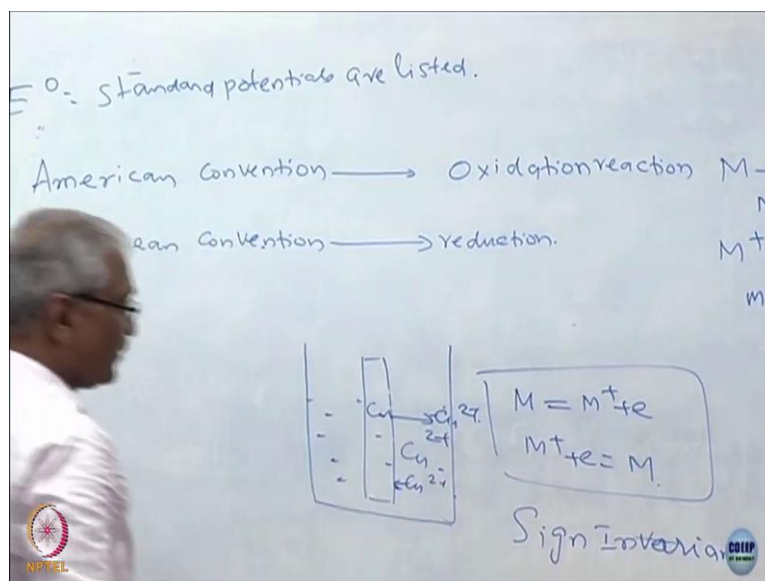 E°= Standard potentials are listed.
American Convention → Oxidation reaction M-
ean Convention → reduction. M+
m
Cu → Cu2+
Cu2+
← Cu2+
M = M+ + e
M+ + e = M.
Sign Invarian
NPTEL
CDEEP
IIT BOMBAY